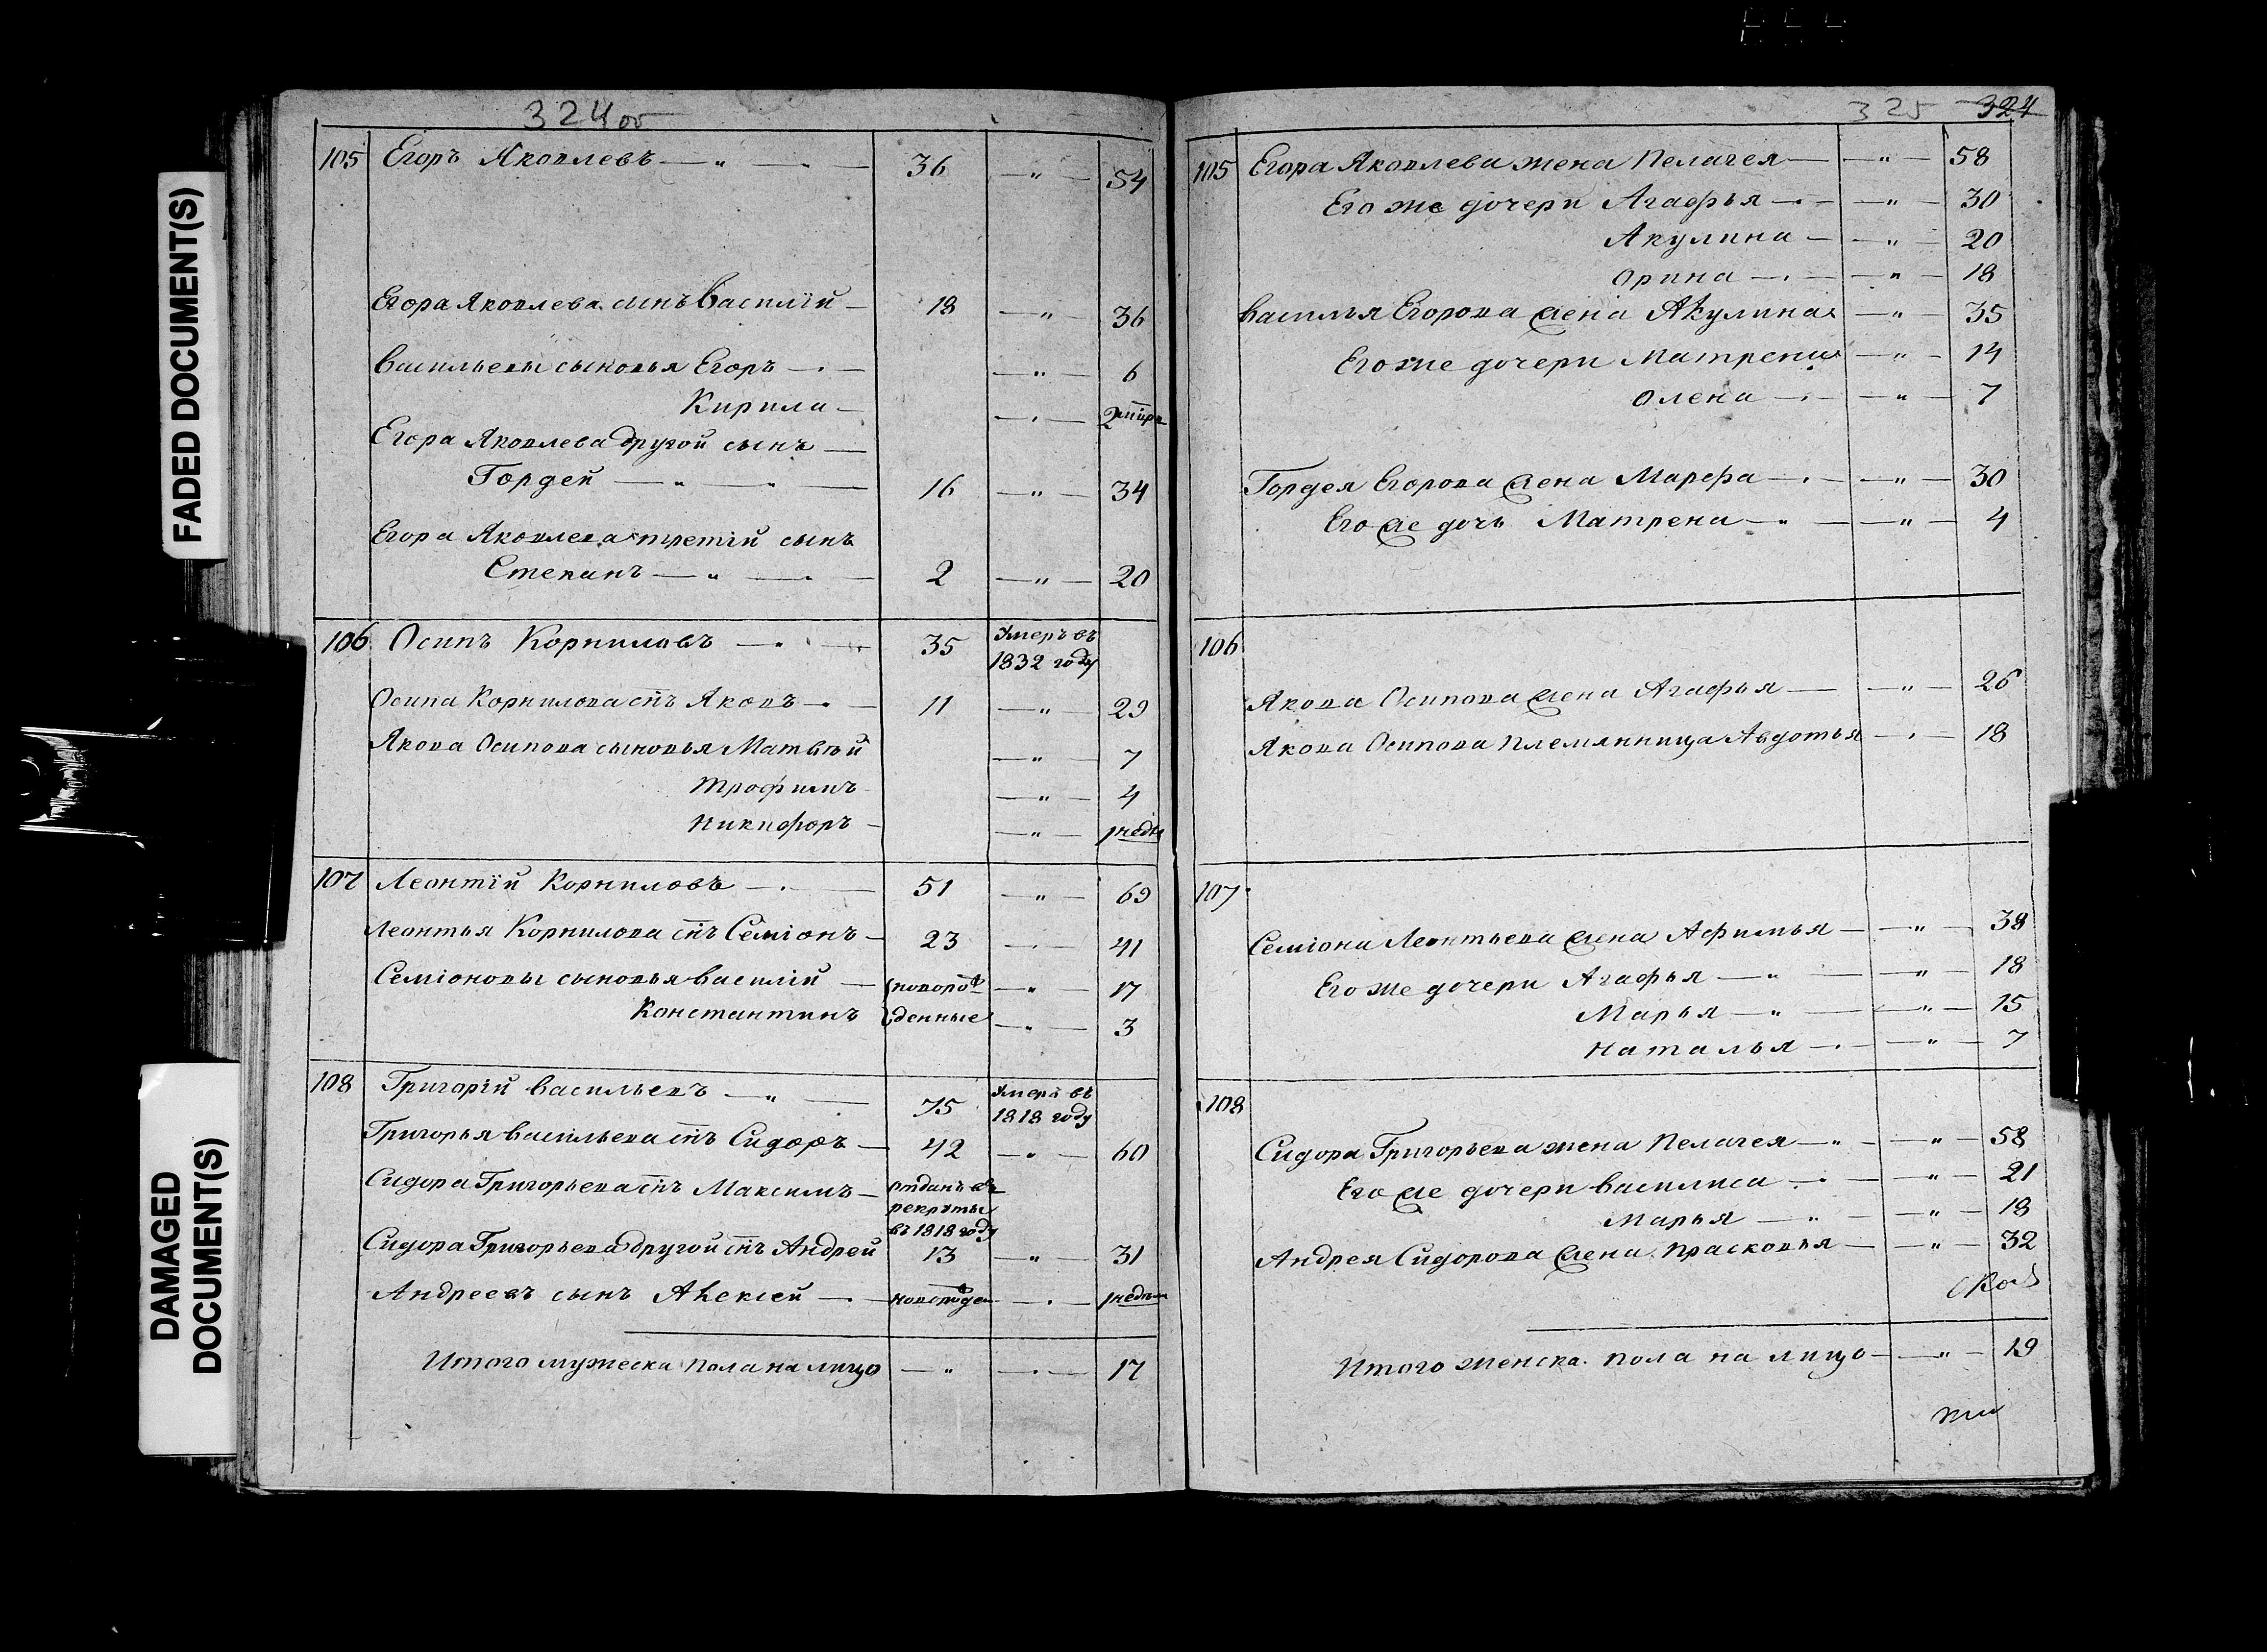 FADED DOCUMENT(S)
DAMAGED
DOCUMENT(S)
324 об
105 Егоръ Яковлевъ — " — 36 — " — 54
Егора Яковлева сынъ Василiй — 18 — " — 36
Васильевы сыновья Егоръ — " — 6
Кирила — 2
Егора Яковлева другой сынъ —
Гордей — " — " — 16 — " — 34
Егора Яковлева третiй сынъ
Степанъ — " — 2 — " — 20
106 Осипъ Корниловъ — 35 Умеръ въ
1832 году
Осипа Корнилова снъ Яковъ — 11 — " — 29
Якова Осипова сыновья Матвѣй — " — 7
Трофимъ — " — 4
Никифоръ — " — 1 недѣл
107 Леонтiй Корниловъ — 51 — " — 69
Леонтья Корнилова снъ Семiонъ — 23 — 41
Семiоновы сыновья Василiй — новорож — " — 17
Константинъ денные — " — 3
108 Григорiй Васильевъ — " — 75 Умеръ въ
1818 году
Григорья Васильева снъ Сидоръ — 42 — " — 60
Сидора Григорьева снъ Максимъ — отданъ въ
рекруты
въ 1818 году
Сидора Григорьева другой снъ Андрей 13 — " — 31
Андреевъ сынъ Алексей — новорожден — 1 недѣл
Итого мужеска пола на лицо — " — 17
325 324
105 Егора Яковлева жена Пелагея — " — 58
Его же дочери Агафья — " — 30
Акулина — " — 20
Орина — " — 18
Василья Егорова жена Акулина — " — 35
Его же дочери Матрена — " — 14
Олена — " — 7
Гордея Егорова жена Марфа — " — 30
Его же дочь Матрена — " — " — 4
106
Якова Осипова жена Агафья — " — 26
Якова Осипова племянница Авдотья — 18
107
Семiона Леонтьева жена Афимья — " — 38
Его же дочери Агафья — " — " — 18
Марья — " — " — 15
Наталья — " — 7
108
Сидора Григорьева жена Пелагея — " — " — 58
Его же дочери Василиса — " — 21
Марья — " — " — 18
Андрея Сидорова жена Прасковья — " — 32
Итого женска пола на лицо — " — 19